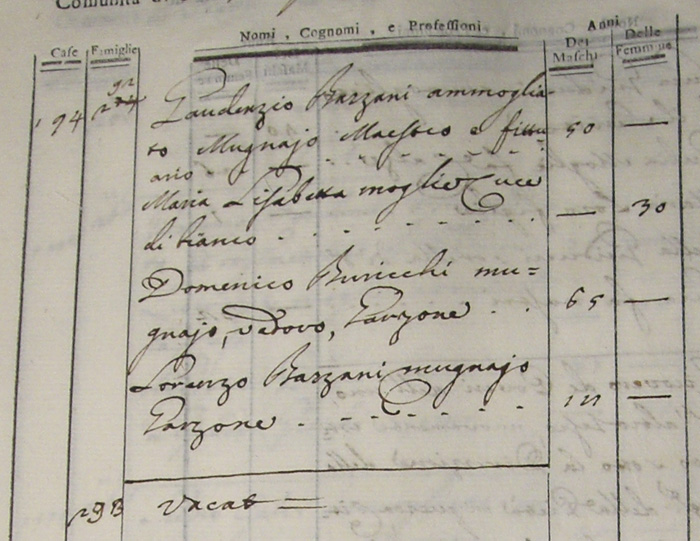 Comunità d
Case
Famiglie
Nomi, Cognomi, e Professioni
Anni
Dei Maschi
Delle Femmine
194
Gaudenzio Barzani ammoglia-
to Mugnajo Maestro e fittu
ario 50 —
Maria Lisabetta moglie Cuce
di bianco — 30
Domenico Buricchi mu=
gnajo, vedovo, Garzone 65 —
Lorenzo Barzani mugnajo
Garzone —
293 vacat =